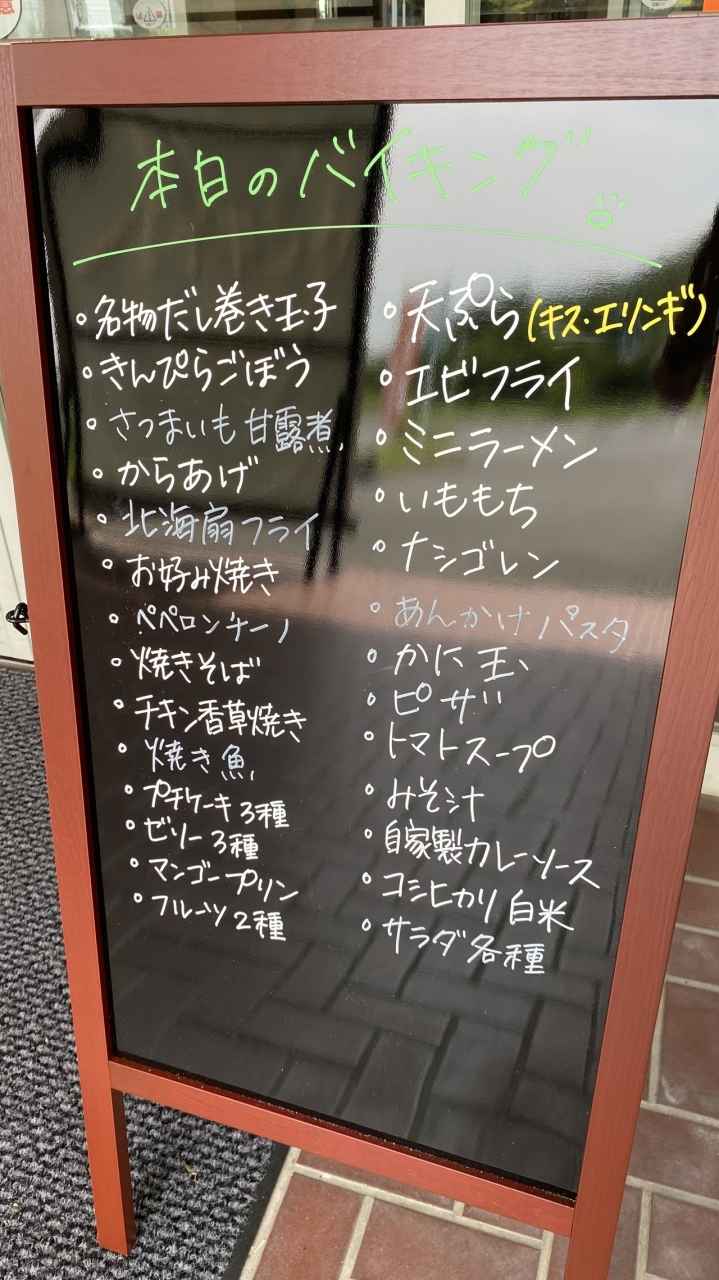 本日のバイキング
・名物だし巻き玉子
・きんぴらごぼう
・さつまいも甘露煮
・からあげ
・北海扇フライ
・お好み焼き
・ペペロンチーノ
・焼きそば
・チキン香草焼き
・焼き魚
・プチケーキ3種
・ゼリー3種
・マンゴープリン
・フルーツ2種
・天ぷら(キス・エリンギ)
・エビフライ
・ミニラーメン
・いももち
・ナシゴレン
・あんかけパスタ
・かに玉
・ピザ
・トマトスープ
・みそ汁
・自家製カレーソース
・コシヒカリ白米
・サラダ各種